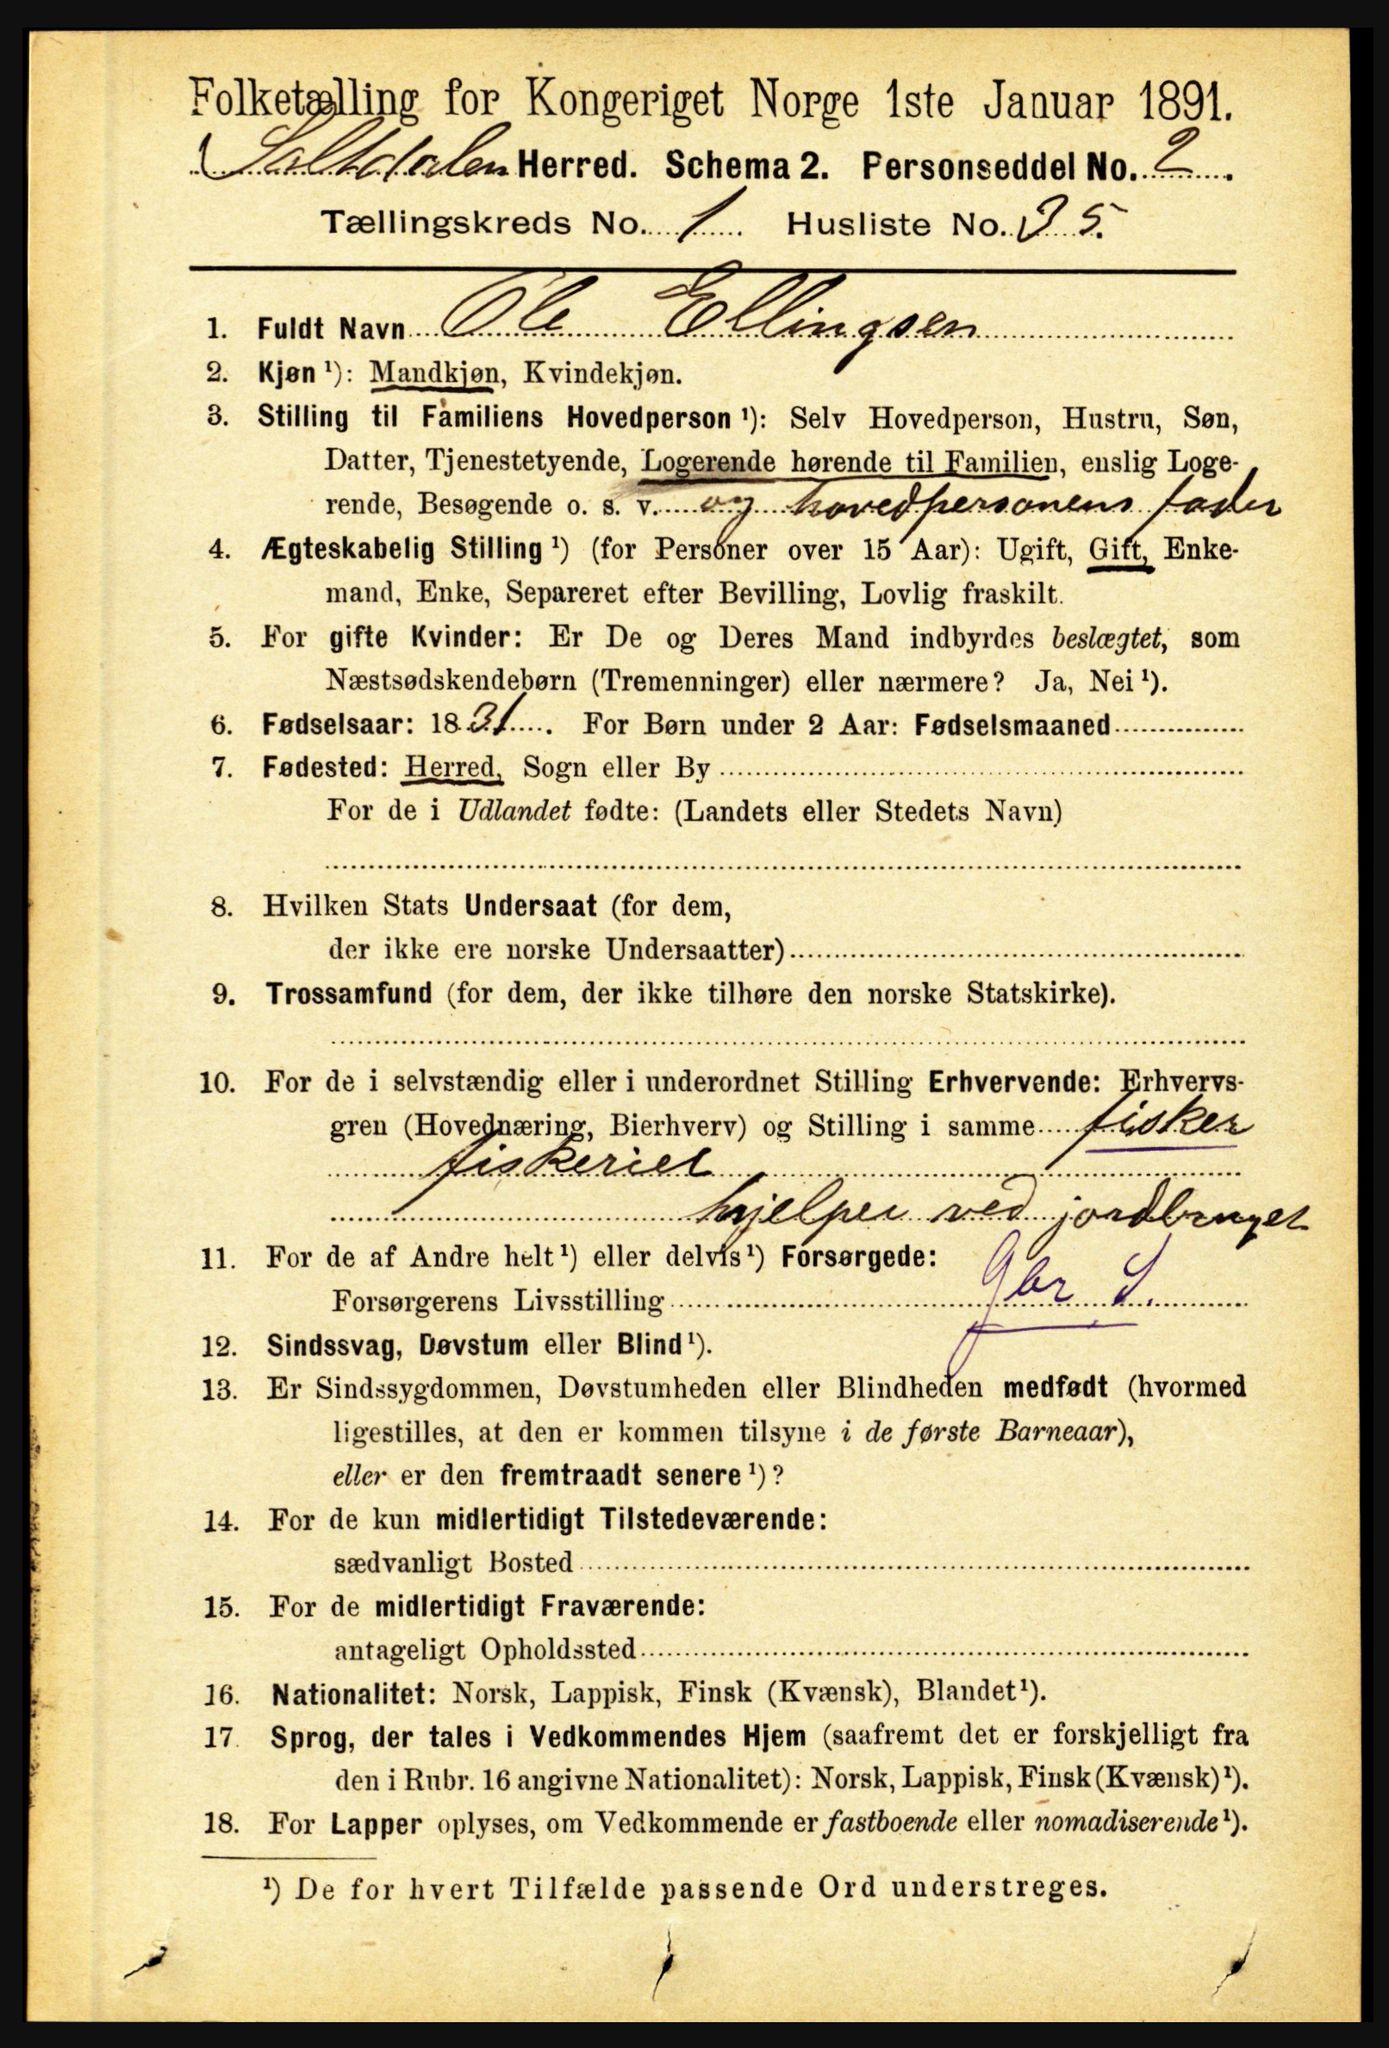 Folketælling for Kongeriget Norge 1ste Januar 1891.
Saltdalen Herred. Schema 2. Personseddel No. 2.
Tællingskreds No. 1. Husliste No. 35.
1. Fuldt Navn Ole Ellingsen
2. Kjøn ¹): Mandkjøn, Kvindekjøn.
3. Stilling til Familiens Hovedperson ¹): Selv Hovedperson, Hustru, Søn,
Datter, Tjenestetyende, Logerende hørende til Familien, enslig Loge-
rende, Besøgende o. s. v. og hovedpersonens fader
4. Ægteskabelig Stilling ¹) (for Personer over 15 Aar): Ugift, Gift, Enke-
mand, Enke, Separeret efter Bevilling, Lovlig fraskilt.
5. For gifte Kvinder: Er De og Deres Mand indbyrdes beslægtet, som
Næstsødskendebørn (Tremenninger) eller nærmere? Ja, Nei ¹).
6. Fødselsaar: 1831. For Børn under 2 Aar: Fødselsmaaned
7. Fødested: Herred, Sogn eller By
For de i Udlandet fødte: (Landets eller Stedets Navn)
8. Hvilken Stats Undersaat (for dem,
der ikke ere norske Undersaatter)
9. Trossamfund (for dem, der ikke tilhøre den norske Statskirke).
10. For de i selvstændig eller i underordnet Stilling Erhvervende: Erhvervs-
gren (Hovednæring, Bierhverv) og Stilling i samme fisker
fiskeriet
hjelper ved jordbruget
11. For de af Andre helt ¹) eller delvis ¹) Forsørgede:
Forsørgerens Livsstilling Gbr S.
12. Sindssvag, Døvstum eller Blind ¹).
13. Er Sindssygdommen, Døvstumheden eller Blindheden medfødt (hvormed
ligestilles, at den er kommen tilsyne i de første Barneaar),
eller er den fremtraadt senere ¹)?
14. For de kun midlertidigt Tilstedeværende:
sædvanligt Bosted
15. For de midlertidigt Fraværende:
antageligt Opholdssted
16. Nationalitet: Norsk, Lappisk, Finsk (Kvænsk), Blandet ¹).
17 Sprog, der tales i Vedkommendes Hjem (saafremt det er forskjelligt fra
den i Rubr. 16 angivne Nationalitet): Norsk, Lappisk, Finsk (Kvænsk) ¹).
18. For Lapper oplyses, om Vedkommende er fastboende eller nomadiserende ¹).
¹) De for hvert Tilfælde passende Ord understreges.